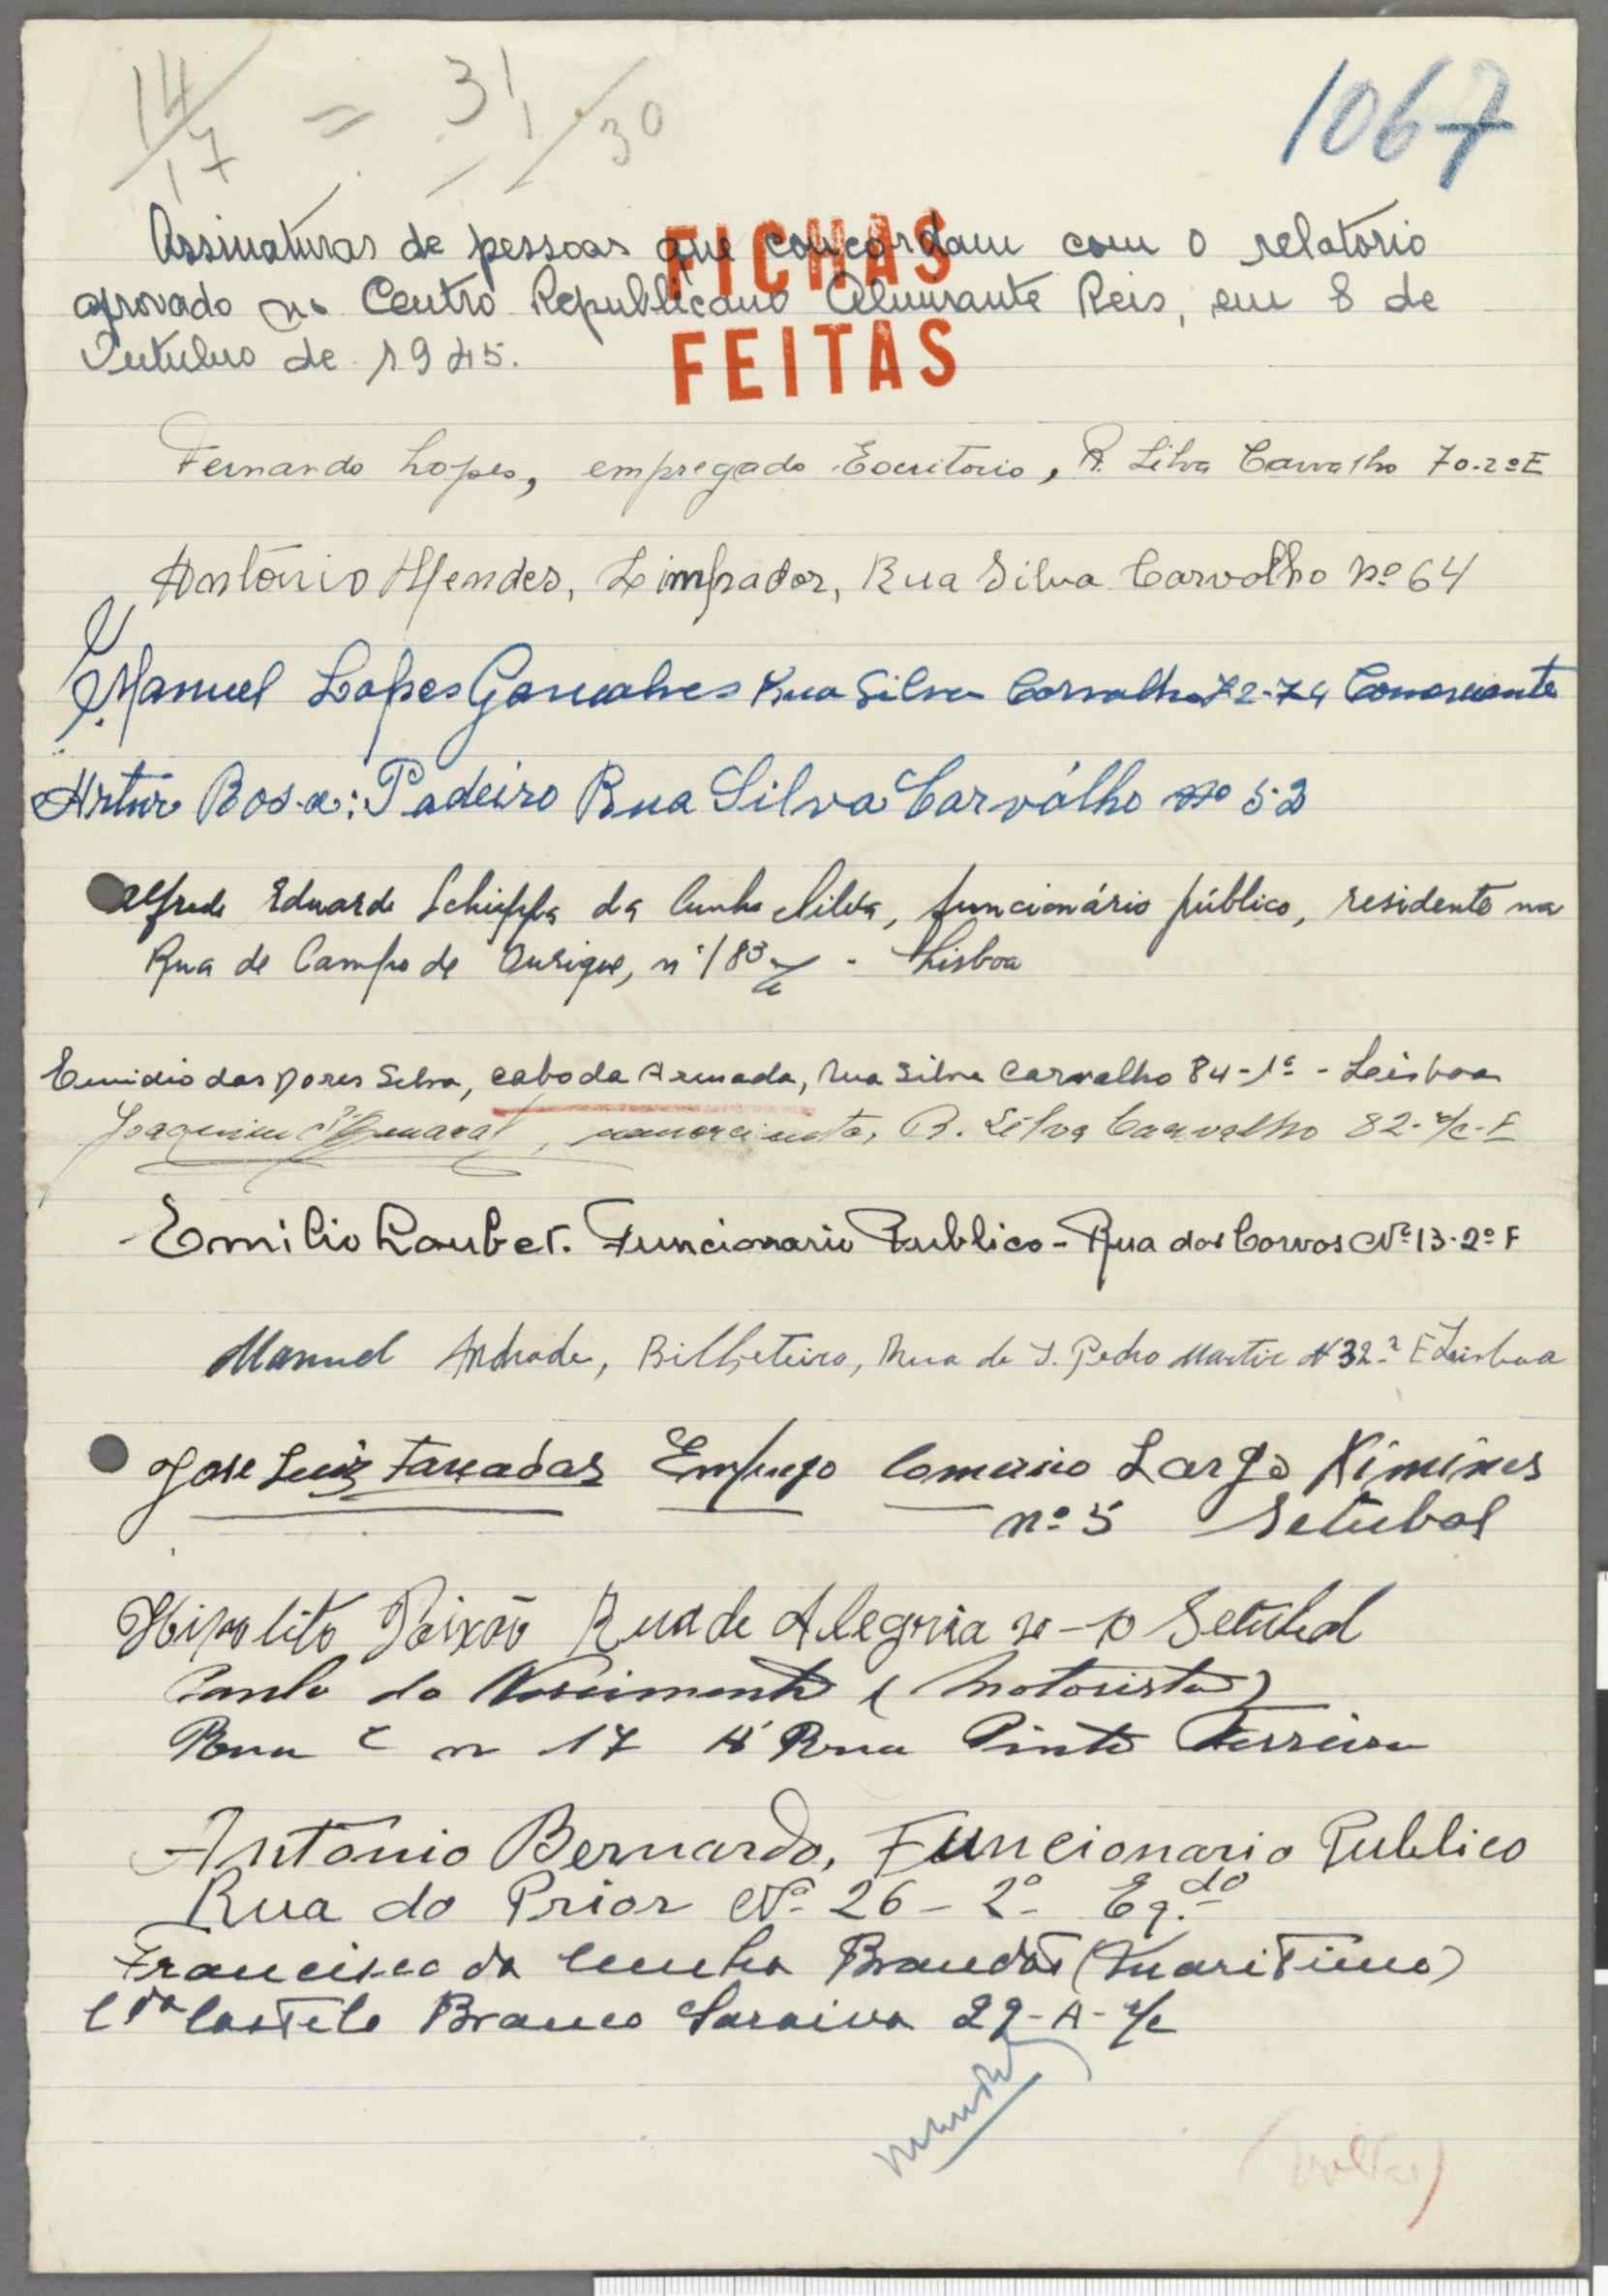 14/17 = 31/30
1067
FICHAS
FEITAS
Assinaturas de pessoas que concordam com o relatorio
aprovado no Centro Republicano Almirante Reis, em 8 de
Outubro de 1945.
Fernando Lopes, empregado Escritorio, R. Silva Carvalho 70-2º E
António Mendes, Limpador, Rua Silva Carvalho nº 64
Manuel Lopes Goncalves Rua Silva Carvalho 72-74 Comerciante
Artur Rosa: Padeiro Rua Silva Carválho nº 52
Alfredo Eduardo Schiappa da Cunha Silva, funcionário público, residente na
Rua de Campo de Ourique, nº 183 - Lisboa
Emidio das Dores Silva, cabo da Armada, Rua Silva Carvalho 84-1º - Lisboa
Joaquim comerciante, R. Silva Carvalho 82-r/c-E
Emilio Loubet. Funcionario Publico - Rua dos Corvos Nº 13-2º F
Manuel Andrade, Bilheteiro, Rua de S. Pedro Martir Nº 32 E Lisboa
Jose Luiz Empregº Comercio Largo Ximenes
nº 5 Setubal
Hipolito Paixão Rua de Alegria nº-10 Setubal
Paulo do Nascimento (Motorista)
Rua C n 17 Rua Pinto Ferreira
António Bernardo, Funcionario Publico
Rua do Prior Nº 26-2º Eq.do
Francisco da Cunha Brandão (Maritimo)
Cda Castelo Branco Saraiva 29-A-r/c
(voltar)